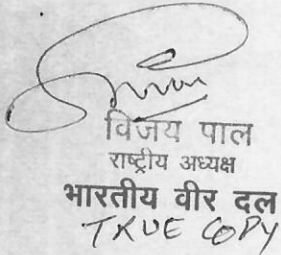 विजय पाल
राष्ट्रीय अध्यक्ष
भारतीय वीर दल
TRUE COPY